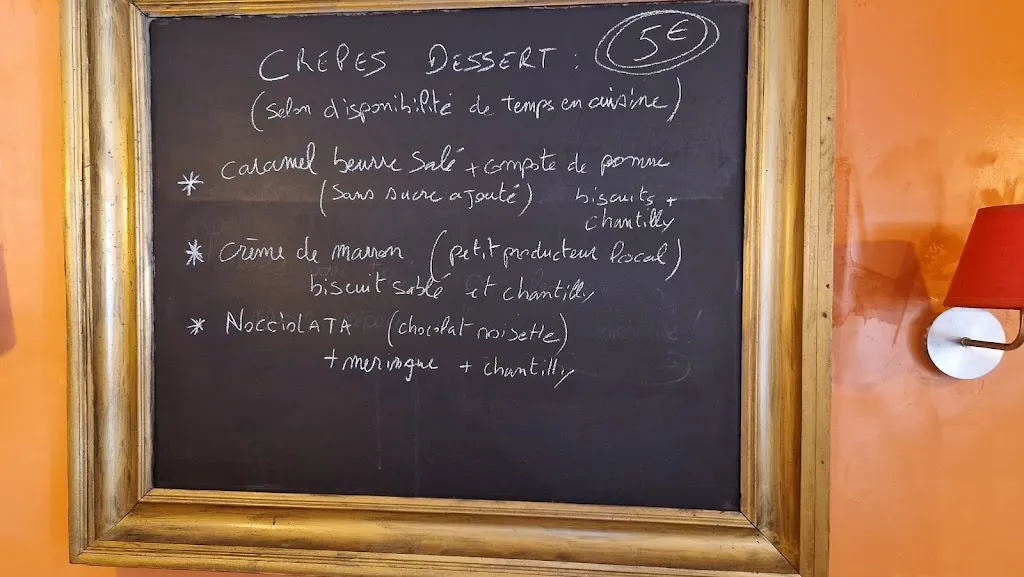 CRÊPES DESSERT : 5€
(selon disponibilité de temps en cuisine)
* caramel beurre salé + compote de pomme
(sans sucre ajouté) biscuits +
chantilly
* crème de marron (petit producteur local)
biscuit sablé et chantilly
* NOCCIOLATA (chocolat noisette)
+ meringue + chantilly